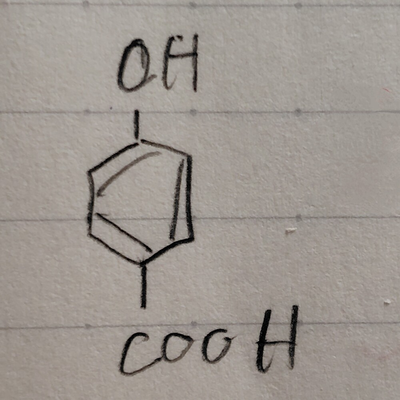 OH
COOH